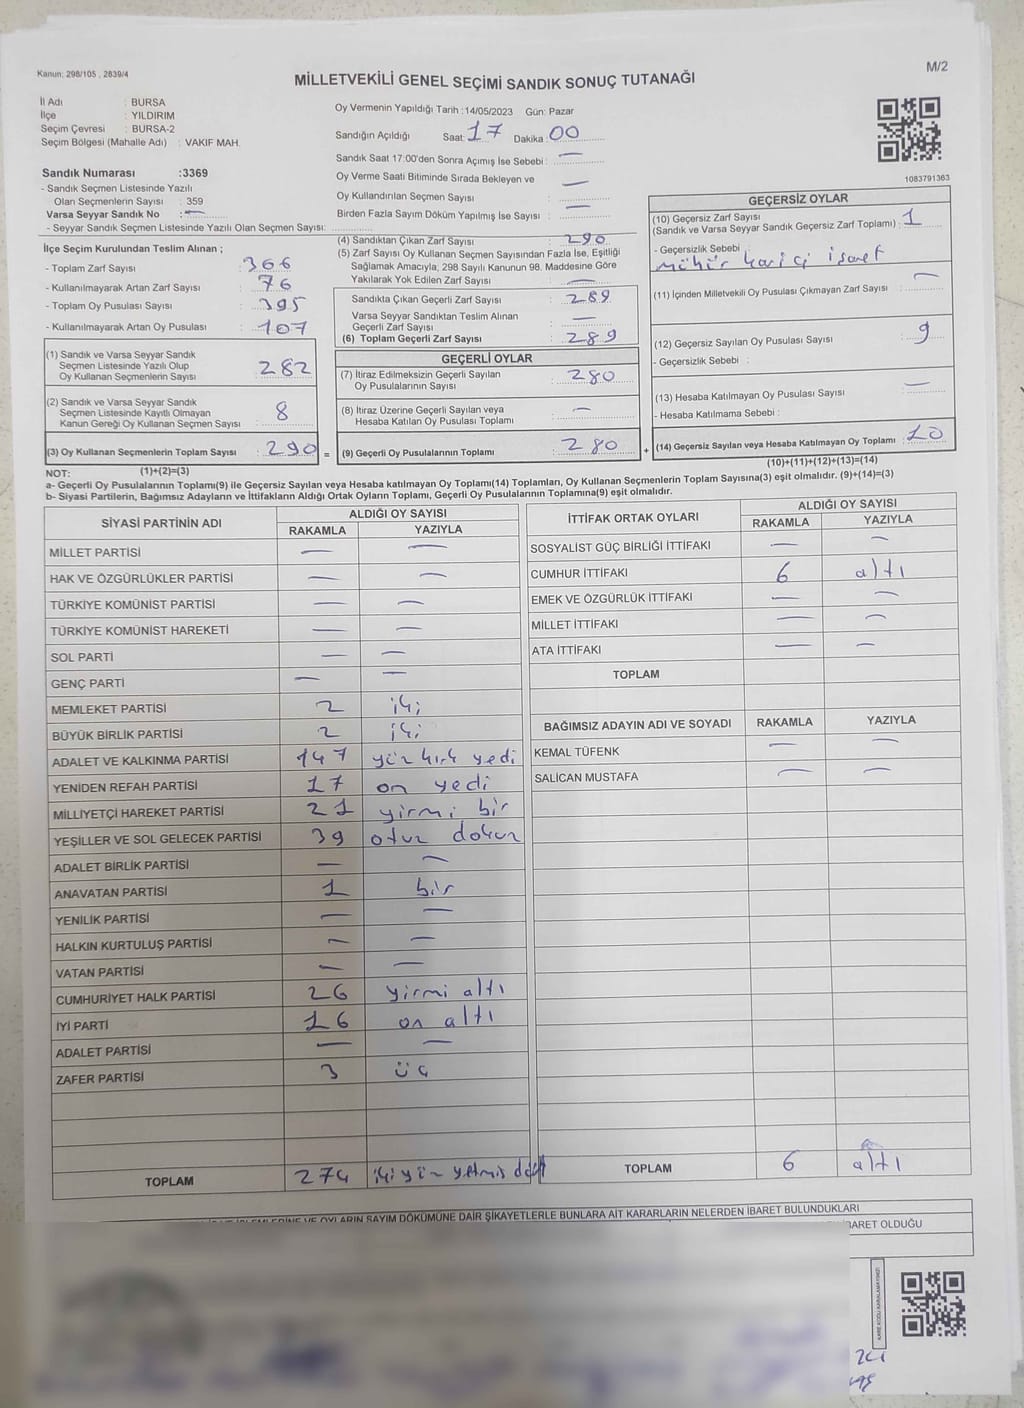 Kanun: 298/105 , 2839/4
M/2
MİLLETVEKİLİ GENEL SEÇİMİ SANDIK SONUÇ TUTANAĞI
İl Adı : BURSA
İlçe : YILDIRIM
Seçim Çevresi : BURSA-2
Seçim Bölgesi (Mahalle Adı) : VAKIF MAH.
Sandık Numarası :3369
- Sandık Seçmen Listesinde Yazılı
Olan Seçmenlerin Sayısı : 359
Varsa Seyyar Sandık No : —
- Seyyar Sandık Seçmen Listesinde Yazılı Olan Seçmen Sayısı:
Oy Vermenin Yapıldığı Tarih :14/05/2023 Gün: Pazar
Sandığın Açıldığı Saat: 17 Dakika : 00
Sandık Saat 17:00'den Sonra Açımış İse Sebebi : —
Oy Verme Saati Bitiminde Sırada Bekleyen ve
Oy Kullandırılan Seçmen Sayısı : —
Birden Fazla Sayım Döküm Yapılmış İse Sayısı : —
1083791363
İlçe Seçim Kurulundan Teslim Alınan ;
- Toplam Zarf Sayısı : 366
- Kullanılmayarak Artan Zarf Sayısı : 76
- Toplam Oy Pusulası Sayısı : 395
- Kullanılmayarak Artan Oy Pusulası : 107
(1) Sandık ve Varsa Seyyar Sandık
Seçmen Listesinde Yazılı Olup
Oy Kullanan Seçmenlerin Sayısı : 282
(2) Sandık ve Varsa Seyyar Sandık
Seçmen Listesinde Kayıtlı Olmayan
Kanun Gereği Oy Kullanan Seçmen Sayısı : 8
(3) Oy Kullanan Seçmenlerin Toplam Sayısı : 290 =
(4) Sandıktan Çıkan Zarf Sayısı : 290
(5) Zarf Sayısı Oy Kullanan Seçmen Sayısından Fazla İse, Eşitliği
Sağlamak Amacıyla, 298 Sayılı Kanunun 98. Maddesine Göre
Yakılarak Yok Edilen Zarf Sayısı : —
Sandıkta Çıkan Geçerli Zarf Sayısı : 289
Varsa Seyyar Sandıktan Teslim Alınan
Geçerli Zarf Sayısı : —
(6) Toplam Geçerli Zarf Sayısı : 289
GEÇERLİ OYLAR
(7) İtiraz Edilmeksizin Geçerli Sayılan
Oy Pusulalarının Sayısı : 280
(8) İtiraz Üzerine Geçerli Sayılan veya
Hesaba Katılan Oy Pusulası Toplamı : —
(9) Geçerli Oy Pusulalarının Toplamı : 280 +
GEÇERSİZ OYLAR
(10) Geçersiz Zarf Sayısı
(Sandık ve Varsa Seyyar Sandık Geçersiz Zarf Toplamı) : 1
- Geçersizlik Sebebi :
mühür harici işaret
(11) İçinden Milletvekili Oy Pusulası Çıkmayan Zarf Sayısı : —
(12) Geçersiz Sayılan Oy Pusulası Sayısı : 9
- Geçersizlik Sebebi :
(13) Hesaba Katılmayan Oy Pusulası Sayısı : —
- Hesaba Katılmama Sebebi :
(14) Geçersiz Sayılan veya Hesaba Katılmayan Oy Toplamı : 10
NOT: (1)+(2)=(3)
(10)+(11)+(12)+(13)=(14)
a- Geçerli Oy Pusulalarının Toplamı(9) ile Geçersiz Sayılan veya Hesaba katılmayan Oy Toplamı(14) Toplamları, Oy Kullanan Seçmenlerin Toplam Sayısına(3) eşit olmalıdır. (9)+(14)=(3)
b- Siyasi Partilerin, Bağımsız Adayların ve İttifakların Aldığı Ortak Oyların Toplamı, Geçerli Oy Pusulalarının Toplamına(9) eşit olmalıdır.
SİYASİ PARTİNİN ADI ALDIĞI OY SAYISI
RAKAMLA YAZIYLA
MİLLET PARTİSİ — —
HAK VE ÖZGÜRLÜKLER PARTİSİ — —
TÜRKİYE KOMÜNİST PARTİSİ — —
TÜRKİYE KOMÜNİST HAREKETİ — —
SOL PARTİ — —
GENÇ PARTİ — —
MEMLEKET PARTİSİ 2 iki
BÜYÜK BİRLİK PARTİSİ 2 iki
ADALET VE KALKINMA PARTİSİ 147 yüz kırk yedi
YENİDEN REFAH PARTİSİ 17 on yedi
MİLLİYETÇİ HAREKET PARTİSİ 21 yirmi bir
YEŞİLLER VE SOL GELECEK PARTİSİ 39 otuz dokuz
ADALET BİRLİK PARTİSİ — —
ANAVATAN PARTİSİ 1 bir
YENİLİK PARTİSİ — —
HALKIN KURTULUŞ PARTİSİ — —
VATAN PARTİSİ — —
CUMHURİYET HALK PARTİSİ 26 yirmi altı
İYİ PARTİ 16 on altı
ADALET PARTİSİ — —
ZAFER PARTİSİ 3 üç
TOPLAM 274 iki yüz yetmiş dört
İTTİFAK ORTAK OYLARI ALDIĞI OY SAYISI
RAKAMLA YAZIYLA
SOSYALİST GÜÇ BİRLİĞİ İTTİFAKI — —
CUMHUR İTTİFAKI 6 altı
EMEK VE ÖZGÜRLÜK İTTİFAKI — —
MİLLET İTTİFAKI — —
ATA İTTİFAKI — —
TOPLAM
BAĞIMSIZ ADAYIN ADI VE SOYADI RAKAMLA YAZIYLA
KEMAL TÜFENK — —
SALİCAN MUSTAFA — —
TOPLAM 6 altı
OYLARIN SAYIM DÖKÜMÜNE DAİR ŞİKAYETLERLE BUNLARA AİT KARARLARIN NELERDEN İBARET BULUNDUKLARI
İBARET OLDUĞU
KARE KODU KARALAMAYINIZ!